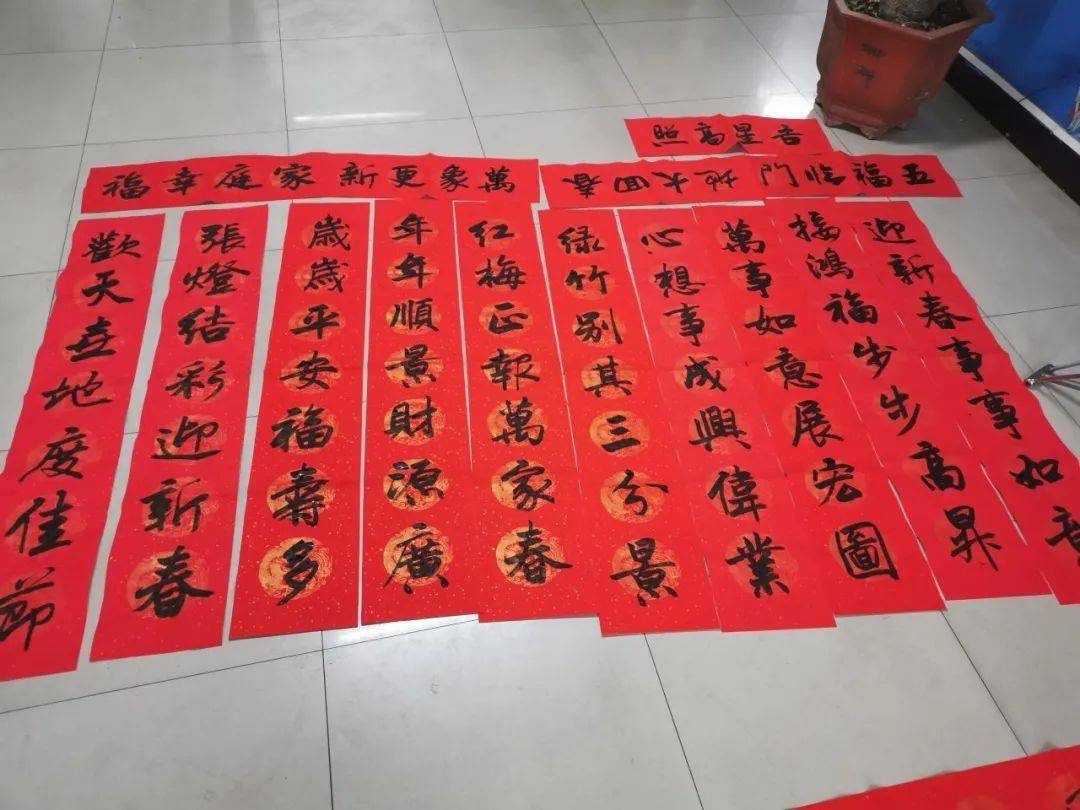 吉星高照
五福临门
春回大地
萬象更新
家庭幸福
迎新春事事如意
接鴻福步步高昇
萬事如意展宏圖
心想事成興偉業
绿竹别其三分景
红梅正報萬家春
年年順景財源廣
歲歲平安福壽多
張燈结彩迎新春
歡天喜地度佳節